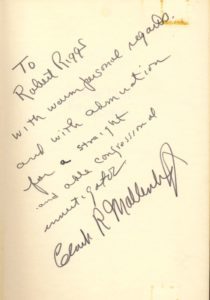 To
Robert Riggs
with warm personal regards
and with admiration
for a straight
and able congressional
investigator
Clark R Mollenhoff